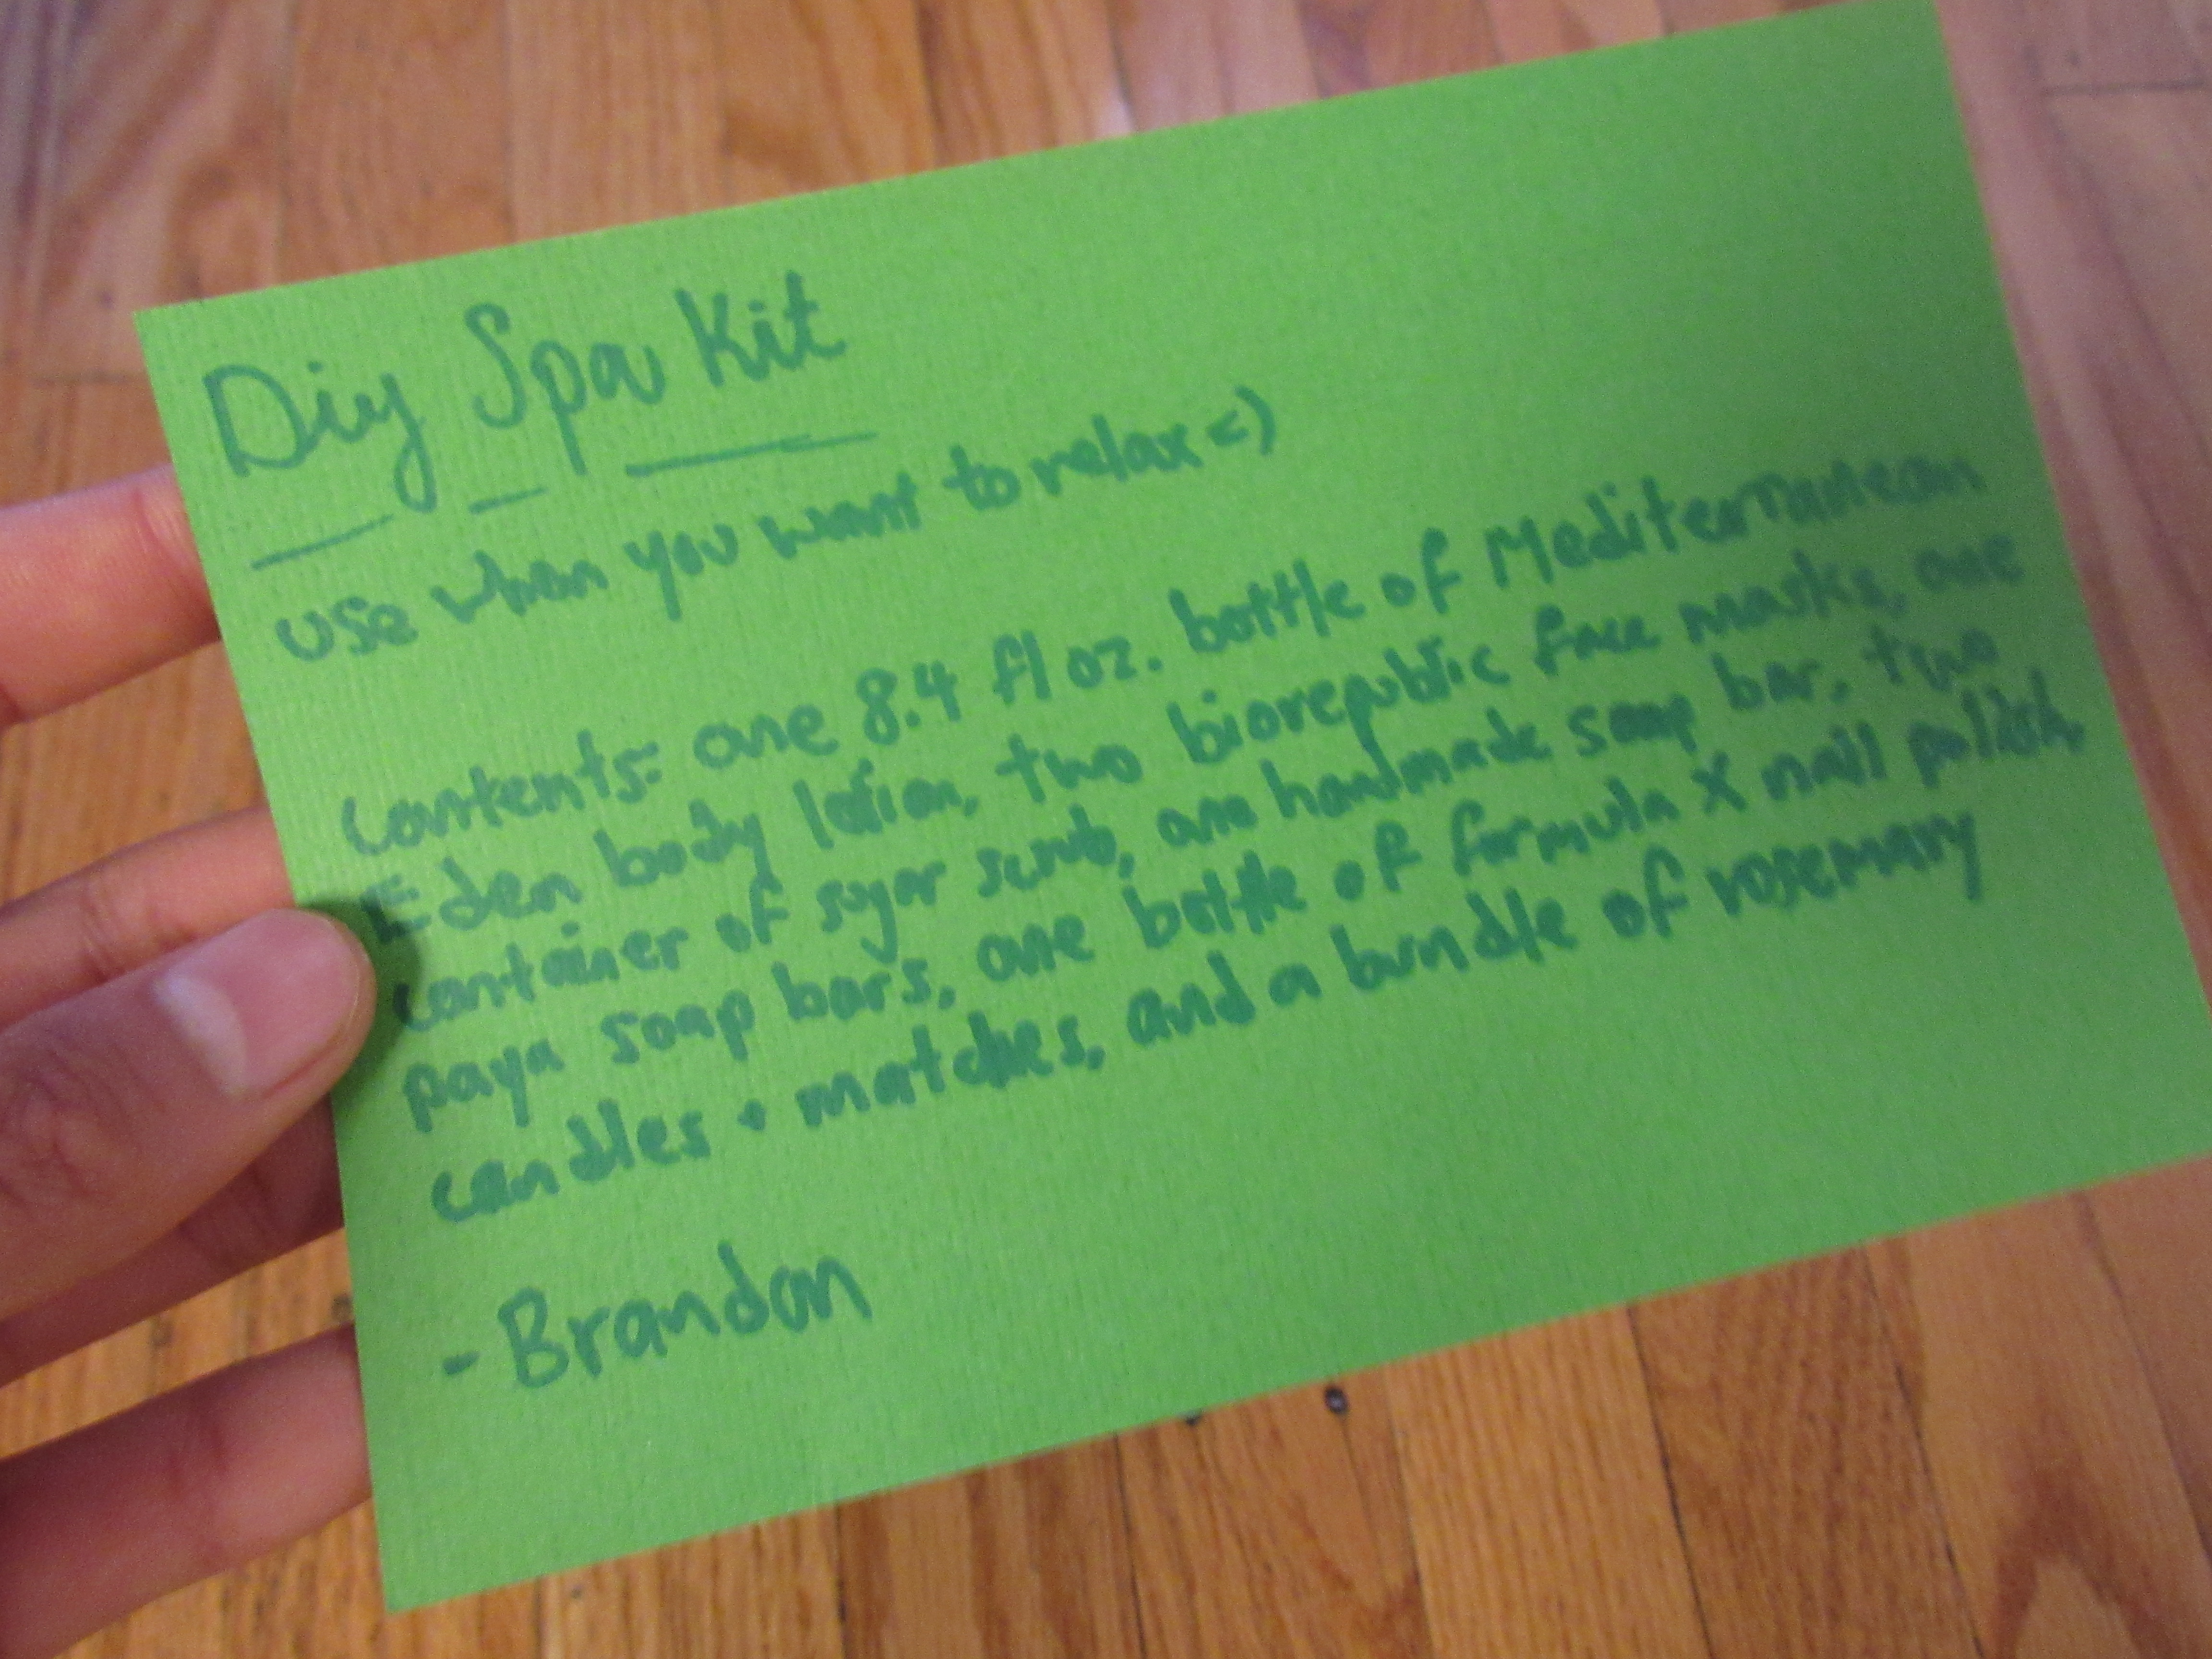 Diy Spa Kit
use when you want to relax =)
contents: one 8.4 fl oz. bottle of Mediterranean
Eden body lotion, two biorepublic face masks, one
container of sugar scrub, one handmade soap bar, two
paya soap bars, one bottle of formula X nail polish,
candles + matches, and a bundle of rosemary
- Brandon